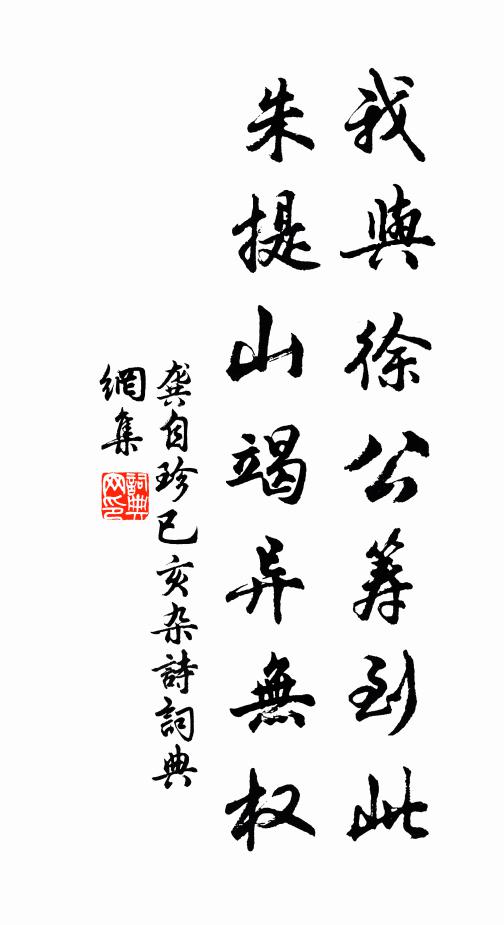 我與徐公筹到此
朱提山竭异無权
龚自珍已亥杂詩詞典
網集
詞典
网印